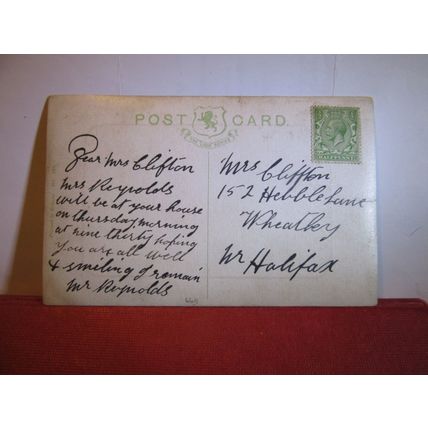 POST CARD
Dear Mrs Clifton
Mrs Reynolds
will be at your house
on thursday morning
at nine thirty hoping
you are all well
& smiling I remain
Mr Reynolds
Mrs Cliffton
152 Hebble Lane
Wheatley
Nr Halifax
HALFPENNY